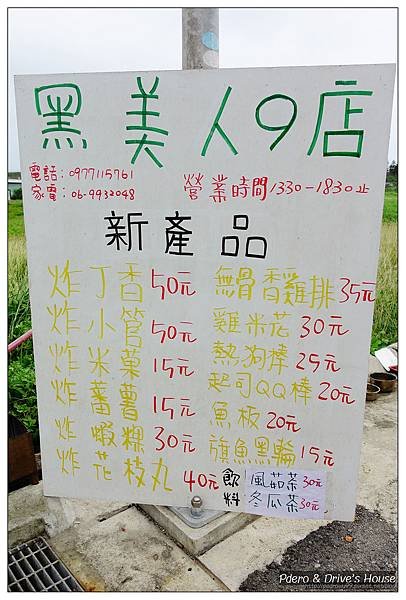 黑美人9店
電話:0977115761
家電:06-9932048
營業時間1330-1830止
新產品
炸丁香50元
炸小管50元
炸米菜15元
炸蕃薯15元
炸蝦粿30元
炸花枝丸40元
無骨香雞排35元
雞米花30元
熱狗棒25元
起司QQ棒20元
魚板20元
旗魚黑輪15元
飲料
風茹茶30元
冬瓜茶30元
Pdero & Drive's House